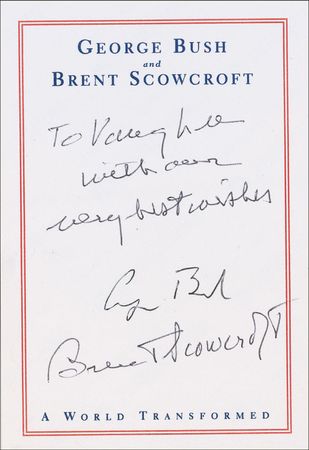 GEORGE BUSH
and
BRENT SCOWCROFT
To Vaughn
with our
very best wishes
G Bush
Brent Scowcroft
A WORLD TRANSFORMED